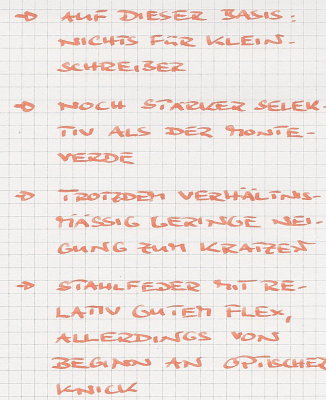 → AUF DIESER BASIS:
NICHTS FÜR KLEIN-
SCHREIBER
→ NOCH STÄRKER SELEK-
TIV ALS DER MONTE-
VERDE
→ TROTZDEM VERHÄLTNIS-
MÄSSIG GERINGE NEI-
GUNG ZUM KRATZEN
→ STAHLFEDER MIT RE-
LATIV GUTEM FLEX,
ALLERDINGS VON
BEGINN AN OPTISCHER
KNICK